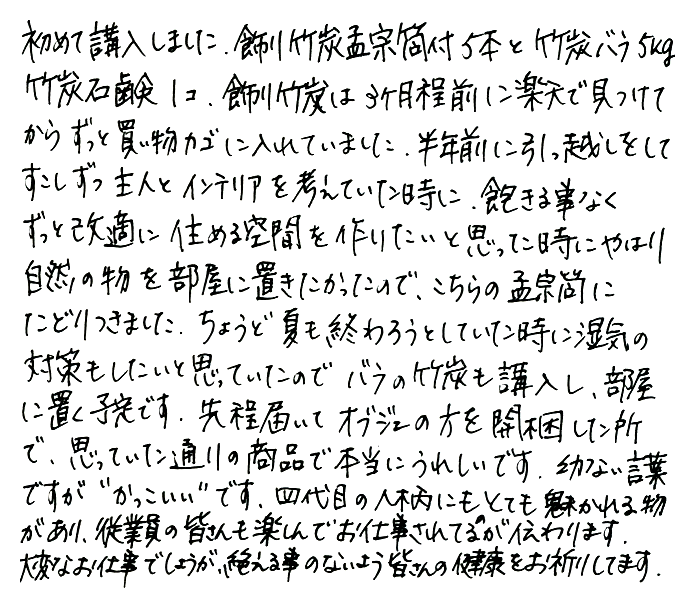 初めて講入しました. 飾り竹炭孟宗筒付5本と竹炭バラ5kg
竹炭石鹸1コ. 飾り竹炭は3ケ月程前に楽天で見つけて
からずっと買い物カゴに入れていました. 半年前に引っ越しをして
すこしずつ主人とインテリアを考えていた時に. 飽きる事なく
ずっと快適に住める空間を作りたいと思った時にやはり
自然の物を部屋に置きたかったので、こちらの孟宗筒に
たどりつきました. ちょうど夏も終わろうとしていた時に湿気の
対策もしたいと思っていたのでバラの竹炭も講入し、部屋
に置く予定です. 先程届いてオブジェの方を開梱した所
で、思っていた通りの商品で本当にうれしいです. 幼ない言葉
ですが"かっこいい"です. 四代目の人柄にもとても魅かれる物
があり、従業員の皆さんも楽しんでお仕事されてるのが伝わります.
大変なお仕事でしょうが、絶える事のないよう皆さんの健康をお祈りしてます.